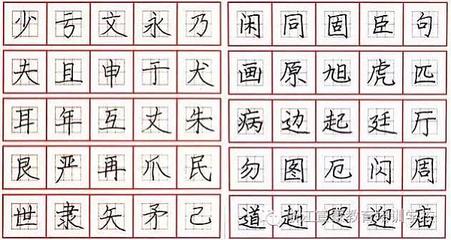 少亏文永乃 闲同固臣句
夫且申于犬 画原旭虎匹
耳年互丈朱 病边起廷厅
艮严再爪民 勿图厄闪周
世隶矢矛己 道赳咫迎庙